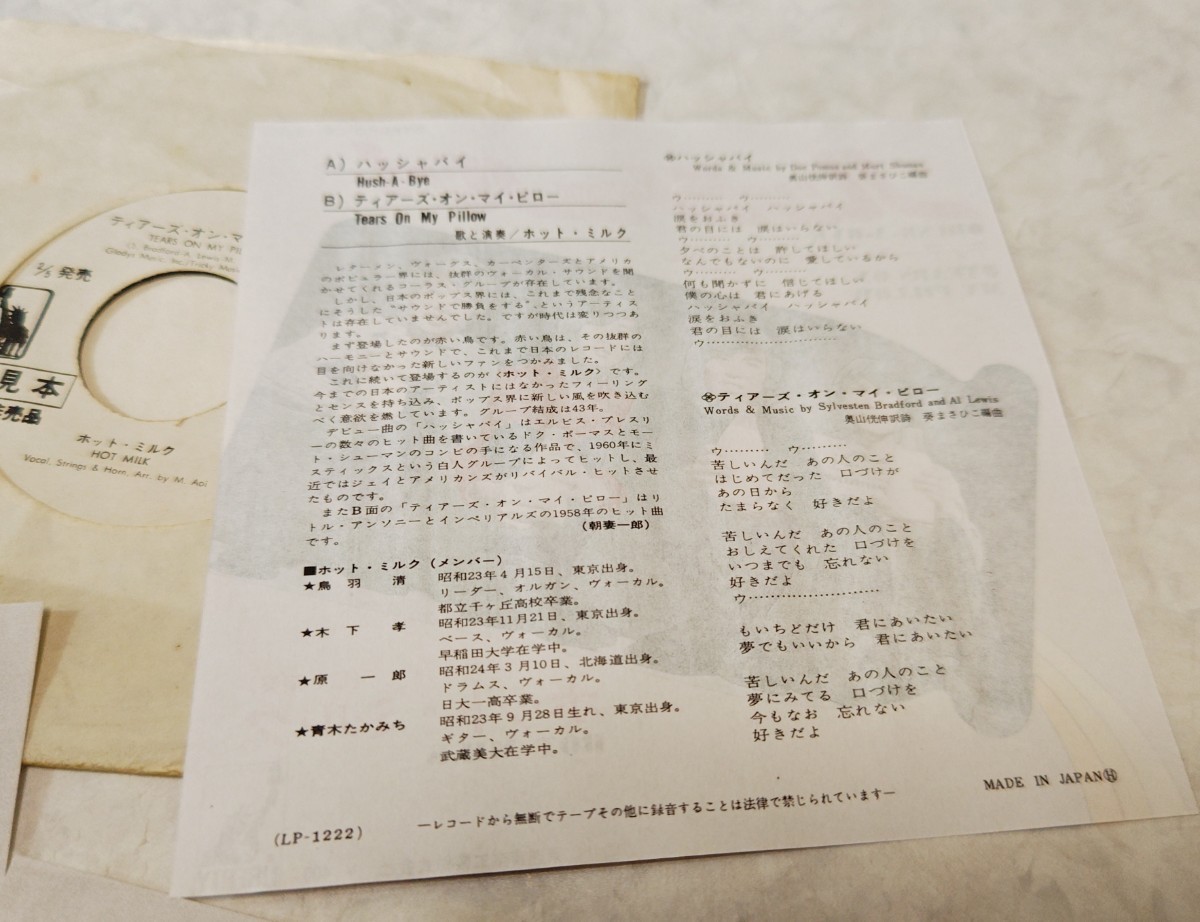 ティアーズ・オン・マ
TEARS ON MY PIL
5/5 発売
見本
売品
ホット・ミルク
HOT MILK
Vocal, Strings & Horn, Arr. by M. Aoi
A) ハッシャバイ
Hush-A-Bye
B) ティアーズ・オン・マイ・ピロー
Tears On My Pillow
歌と演奏/ホット・ミルク
レターメン、ヴォーグス、カーペンターズとアメリカ
のポピュラー界には、抜群のヴォーカル・サウンドを聞
かせてくれるコーラス・グループが存在しています。
しかし、日本のポップス界には、これまで残念なこと
にそうした“サウンドで勝負をする”というアーティス
トは存在していませんでした。ですが時代は変りつつあ
ります。
まず登場したのが赤い鳥です。赤い鳥は、その抜群の
ハーモニーとサウンドで、これまで日本のレコードには
目を向けなかった新しいファンをつかみました。
これに続いて登場するのが〈ホット・ミルク〉です。
今までの日本のアーティストにはなかったフィーリング
とセンスを持ち込み、ポップス界に新しい風を吹き込む
べく意欲を燃しています。グループ結成は43年。
デビュー曲の「ハッシャバイ」はエルビス・プレスリ
ーの数々のヒット曲を書いているドク・ポーマスとモー
ト・シューマンのコンビの手になる作品で、1960年にミ
スティックスという白人グループによってヒットし、最
近ではジェイとアメリカンズがリバイバル・ヒットさせ
たものです。
またB面の「ティアーズ・オン・マイ・ピロー」はリ
トル・アンソニーとインペリアルズの1958年のヒット曲
です。
(朝妻一郎)
■ホット・ミルク(メンバー)
★鳥羽 清 昭和23年4月15日、東京出身。
リーダー、オルガン、ヴォーカル。
都立千ヶ丘高校卒業。
★木下 孝 昭和23年11月21日、東京出身。
ベース、ヴォーカル。
早稲田大学在学中。
★原 一郎 昭和24年3月10日、北海道出身。
ドラムス、ヴォーカル。
日大一高卒業。
★青木たかみち 昭和23年9月28日生れ、東京出身。
ギター、ヴォーカル。
武蔵美大在学中。
(LP-1222)
—レコードから無断でテープその他に録音することは法律で禁じられています—
MADE IN JAPAN Ⓗ
ハッシャバイ
Words & Music by Doc Pomus and Mort Shuman
奥山恍伸訳詩 葵まさひこ編曲
ウ……… ウ………
ハッシャバイ ハッシャバイ
涙をおふき
君の目には 涙はいらない
ウ……… ウ………
夕べのことは 許してほしい
なんでもないのに 愛しているから
ウ……… ウ………
何も聞かずに 信じてほしい
僕の心は 君にあげる
ハッシャバイ ハッシャバイ
涙をおふき
君の目には 涙はいらない
ウ……………………
ティアーズ・オン・マイ・ピロー
Words & Music by Sylvesten Bradford and Al Lewis
奥山恍伸訳詩 葵まさひこ編曲
ウ……… ウ………
苦しいんだ あの人のこと
はじめてだった 口づけが
あの日から
たまらなく 好きだよ
苦しいんだ あの人のこと
おしえてくれた 口づけを
いつまでも 忘れない
好きだよ
ウ……………………
もいちどだけ 君にあいたい
夢でもいいから 君にあいたい
苦しいんだ あの人のこと
夢にみてる 口づけを
今もなお 忘れない
好きだよ